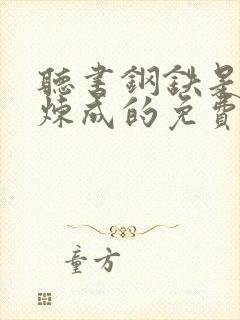 聽書鋼鉄是
煉成的免費
童方